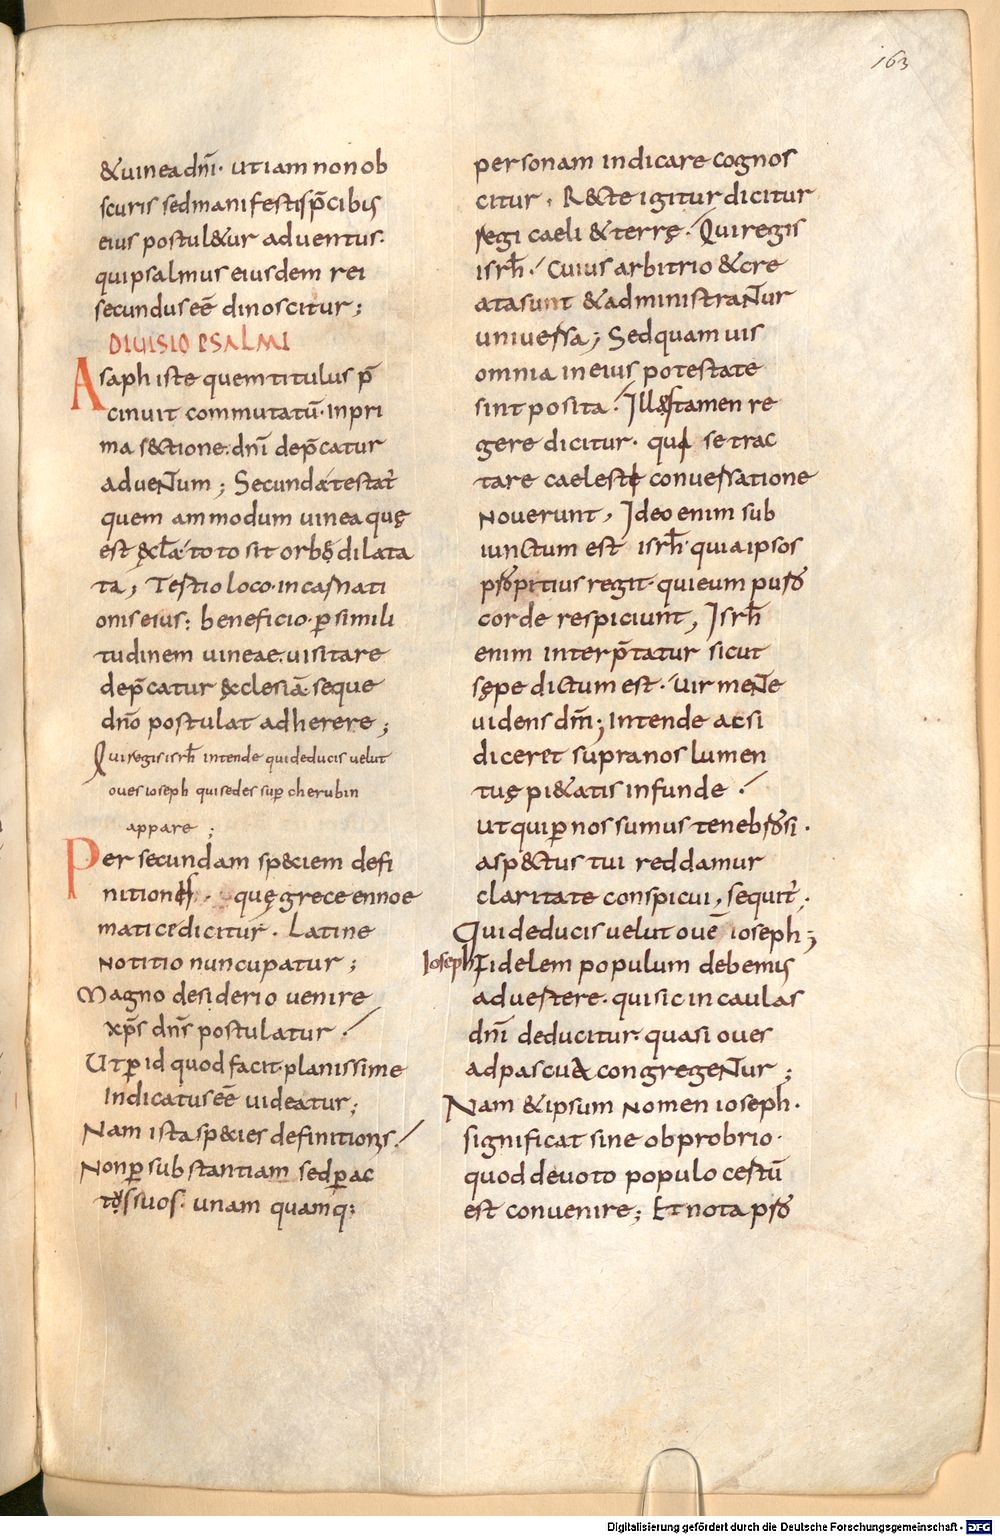 163
&uinea dn̄i· ut iam non ob
scuris sed manifestis p̄cibus
eius postul&ur aduentus·
qui psalmus eiusdem rei
secundus eē dinoscitur;
DIUISIO PSALMI
Asaph iste quem titulus p̄
cinuit commutatū· In pri
ma s&ctione· dn̄i dep̄catur
aduentum; Secunda testat̄
quem ammodum uinea quę
est ęccl̄a· toto sit orbę dilata
ta; Tertio loco· incarnati
onis eius: beneficio· p simili
tudinem uineae· uisitare
dep̄catur ęcclesiā· seque
dn̄o postulat adherere;
Qui regis isrl̄ intende qui deducis uelut
oues ioseph qui sedes sup cherubin
appare;
Per secundam sp&ciem defi
nitiones· quę grece ennoe
matice dicitur· Latine
notitio nuncupatur;
Magno desiderio uenire
xp̄s dn̄s postulatur·
Ut p id quod facit· planissime
Indicatus eē uideatur;
Nam ista sp&cies definitionis·
Non p substantiam sed p ac
tos suos· unam quamq;
personam indicare cognos
citur· R&cte igitur dicitur
regi caeli & terrę· Qui regis
isrl̄· Cuius arbitrio & cre
ata sunt & administrantur
uniuersa; Sed quamuis
omnia in eius potestate
sint posita· Illos tamen re
gere dicitur· qui se trac
tare caeleste conuersatione
nouerunt, Ideo enim sub
iunctum est isrl̄· quia ipsos
propitius regit· qui eum puro
corde respiciunt, Isrl̄
enim interp̄tatur sicut
sępe dictum est· uir mente
uidens dm̄; Intende ac si
diceret supra nos lumen
tuę pi&atis infunde·
Ut qui p nos sumus tenebrosi·
asp&ctus tui reddamur
claritate conspicui, sequit̄·
Qui deducis uelut ouē ioseph;
Ioseph Fidelem populum debemus
aduertere· qui sic in caulas
dn̄i deducitur· quasi oues
ad pascua congregentur;
Nam & ipsum nomen ioseph·
significat sine obprobrio·
quod deuoto populo certū
est conuenire; Et nota pro
Digitalisierung gefördert durch die Deutsche Forschungsgemeinschaft - DFG